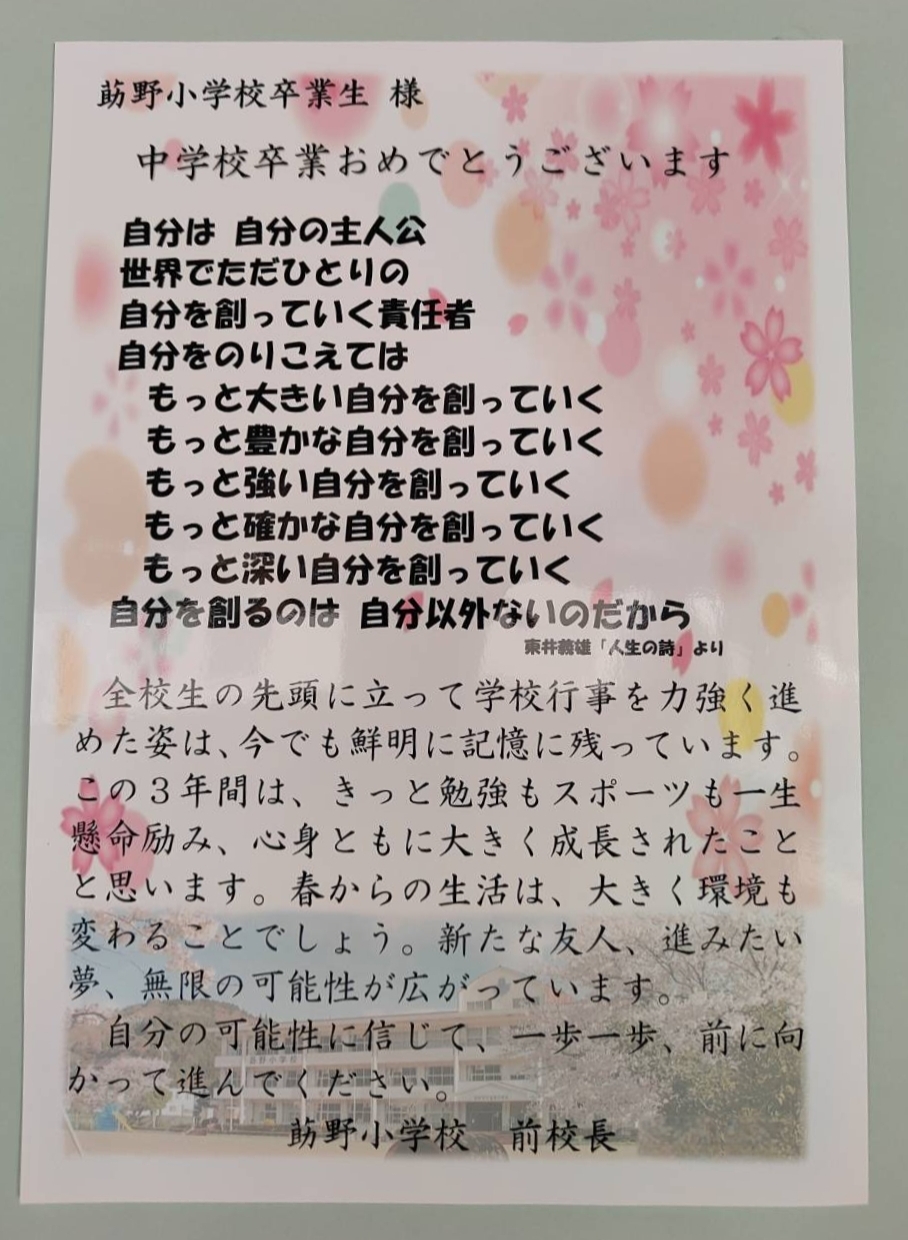 莇野小学校卒業生 様
中学校卒業おめでとうございます
自分は 自分の主人公
世界でただひとりの
自分を創っていく責任者
自分をのりこえては
もっと大きい自分を創っていく
もっと豊かな自分を創っていく
もっと強い自分を創っていく
もっと確かな自分を創っていく
もっと深い自分を創っていく
自分を創るのは 自分以外ないのだから
東井義雄「人生の詩」より
全校生の先頭に立って学校行事を力強く進
めた姿は、今でも鮮明に記憶に残っています。
この３年間は、きっと勉強もスポーツも一生
懸命励み、心身ともに大きく成長されたこと
と思います。春からの生活は、大きく環境も
変わることでしょう。新たな友人、進みたい
夢、無限の可能性が広がっています。
自分の可能性に信じて、一歩一歩、前に向
かって進んでください。
莇野小学校 前校長